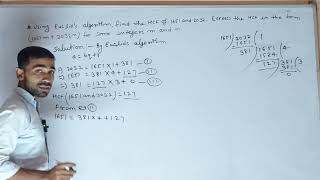 Using Euclid's algorithm, find the HCF of 1651 and 2032. Express the HCF in the form
(1651m + 2032n) for some integers m and n.
Solution:- By Euclid's algorithm
a = bq + r
2032 = 1651 × 1 + 381 — (I)
1651 = 381 × 4 + 127 — (II)
381 = 127 × 3 + 0
HCF (1651 and 2032) = 127
From eq (II)
1651 = 381 × 4 + 127
1651 ) 2032 ( 1
1651
381 ) 1651 ( 4
1524
127 ) 381 ( 3
381
0